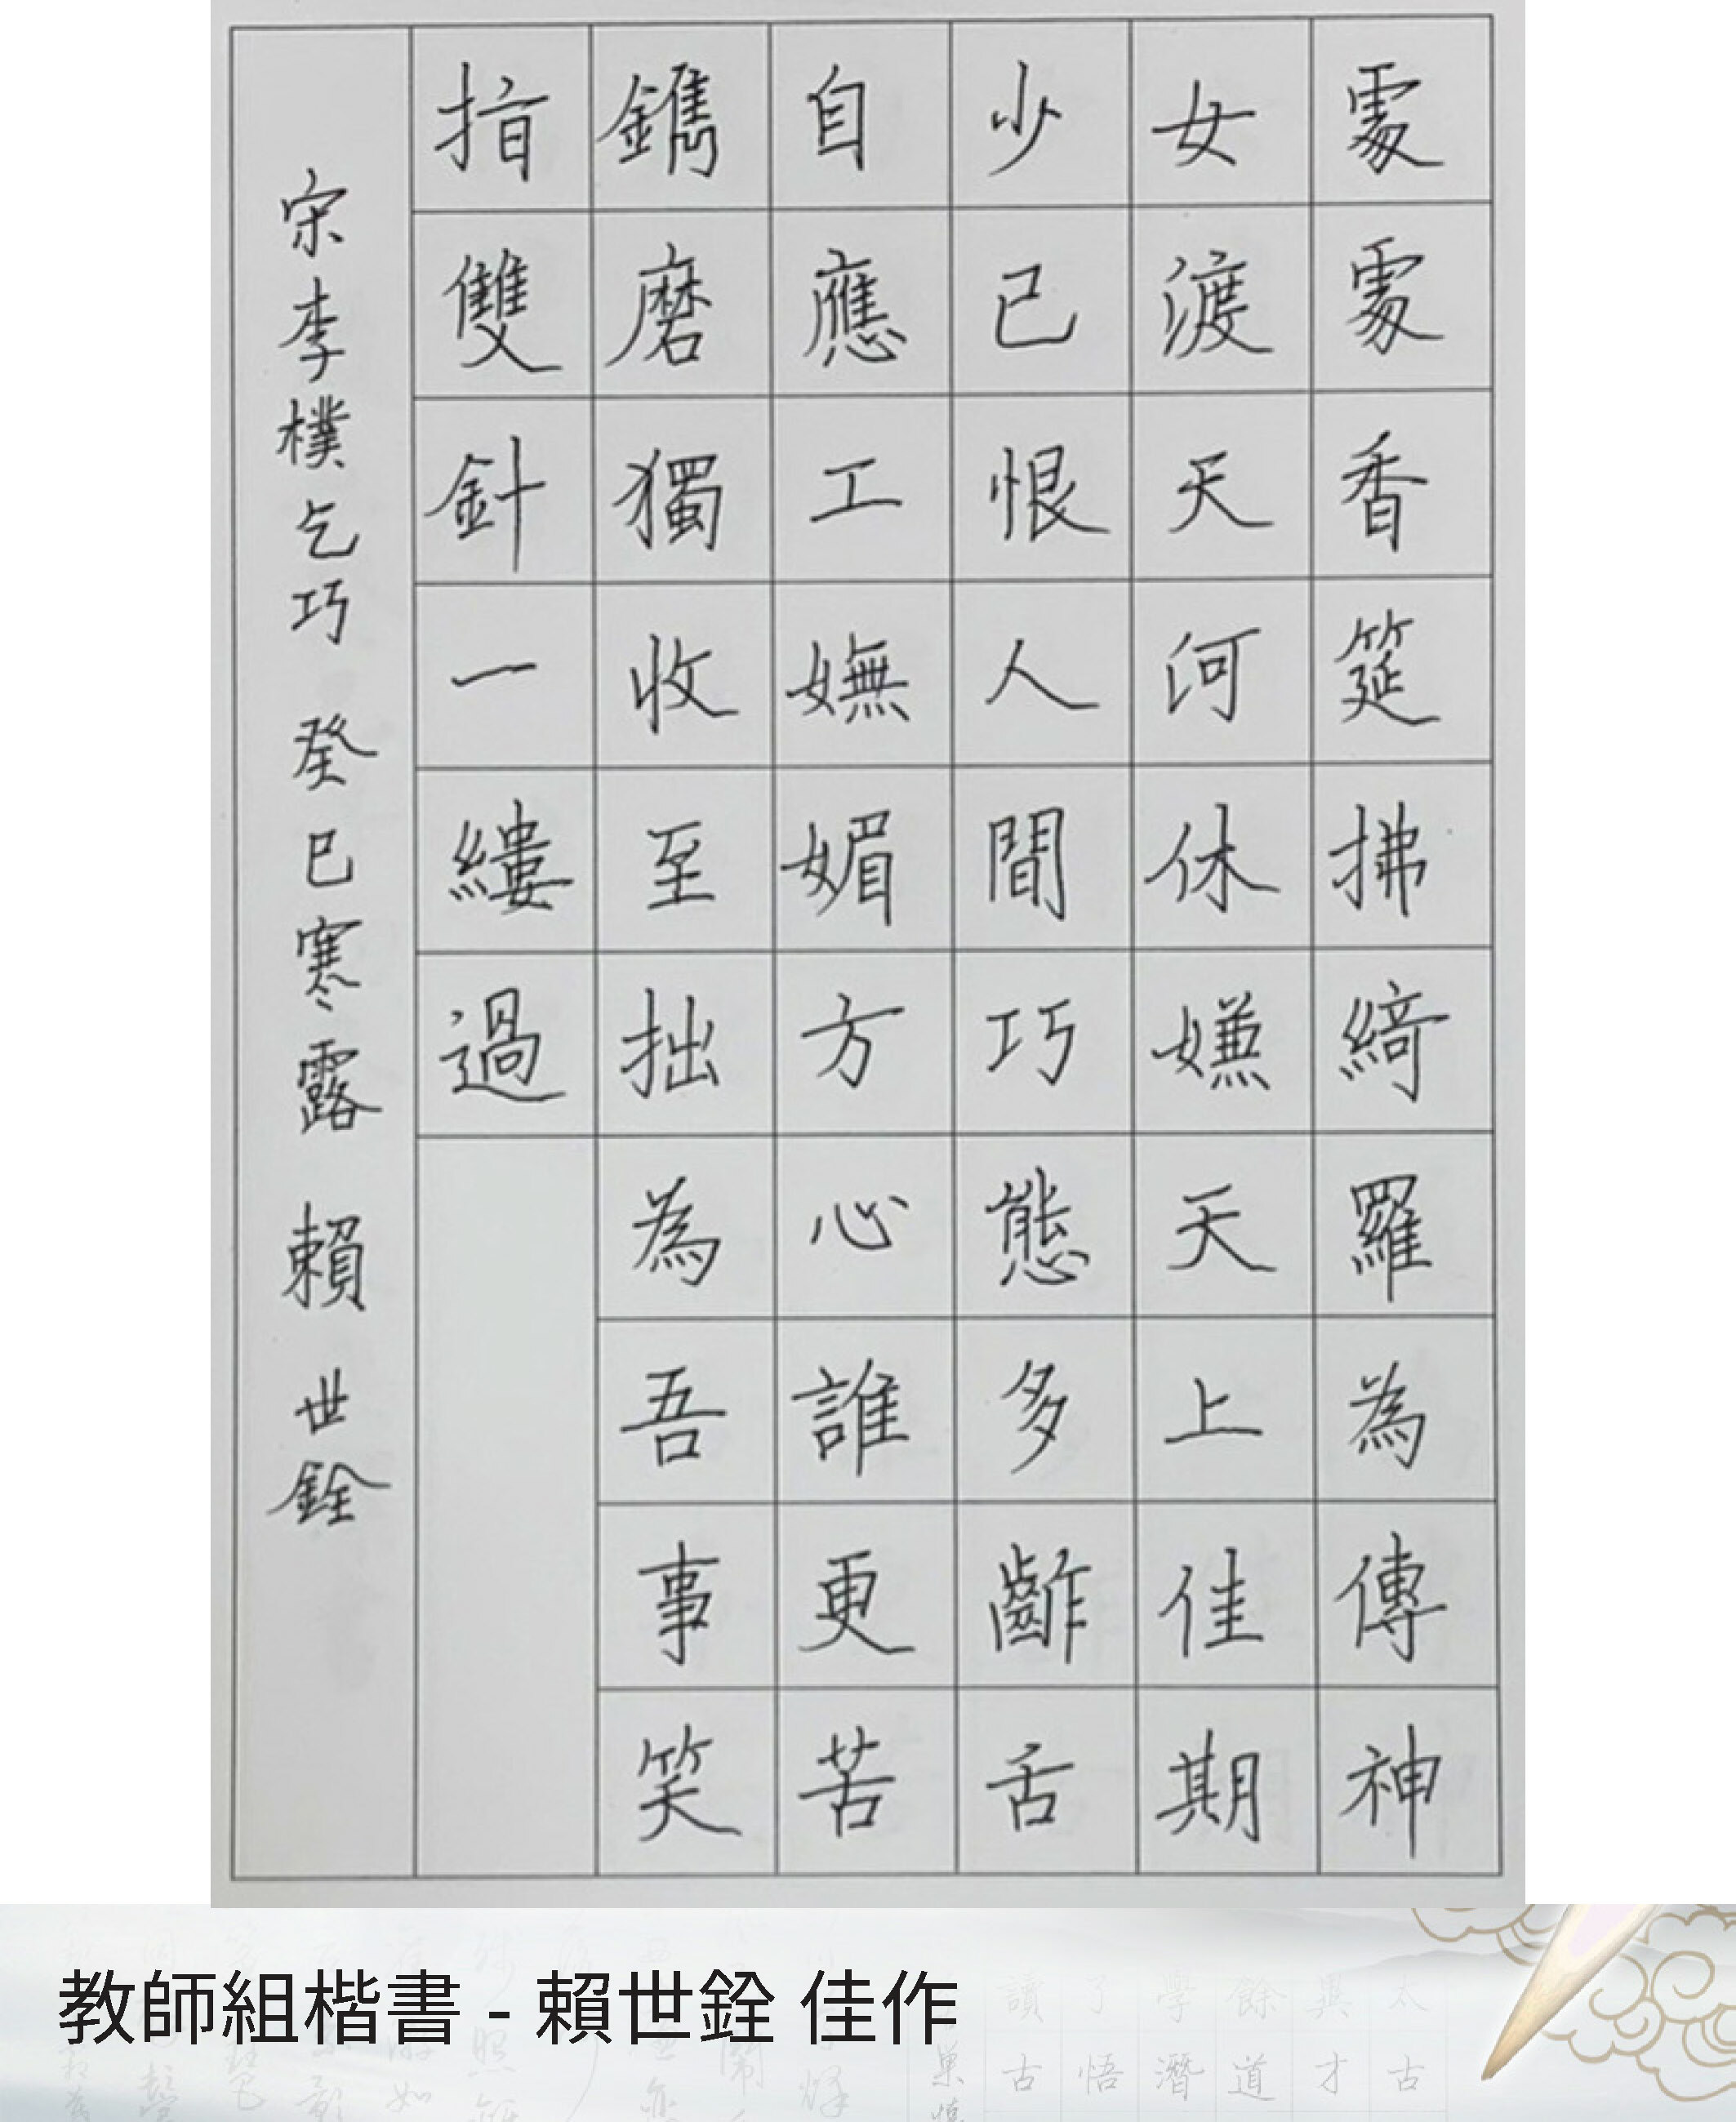 處處香筵拂綺羅為傳神
女渡天河休嫌天上佳期
少已恨人間巧態多齚舌
自應工嫵媚方心誰更苦
鐫磨獨收至拙為吾事笑
指雙針一縷過
宋李樸乞巧 癸巳寒露 賴世銓
教師組楷書 - 賴世銓 佳作
讀了字餘與太
古悟潛道才古